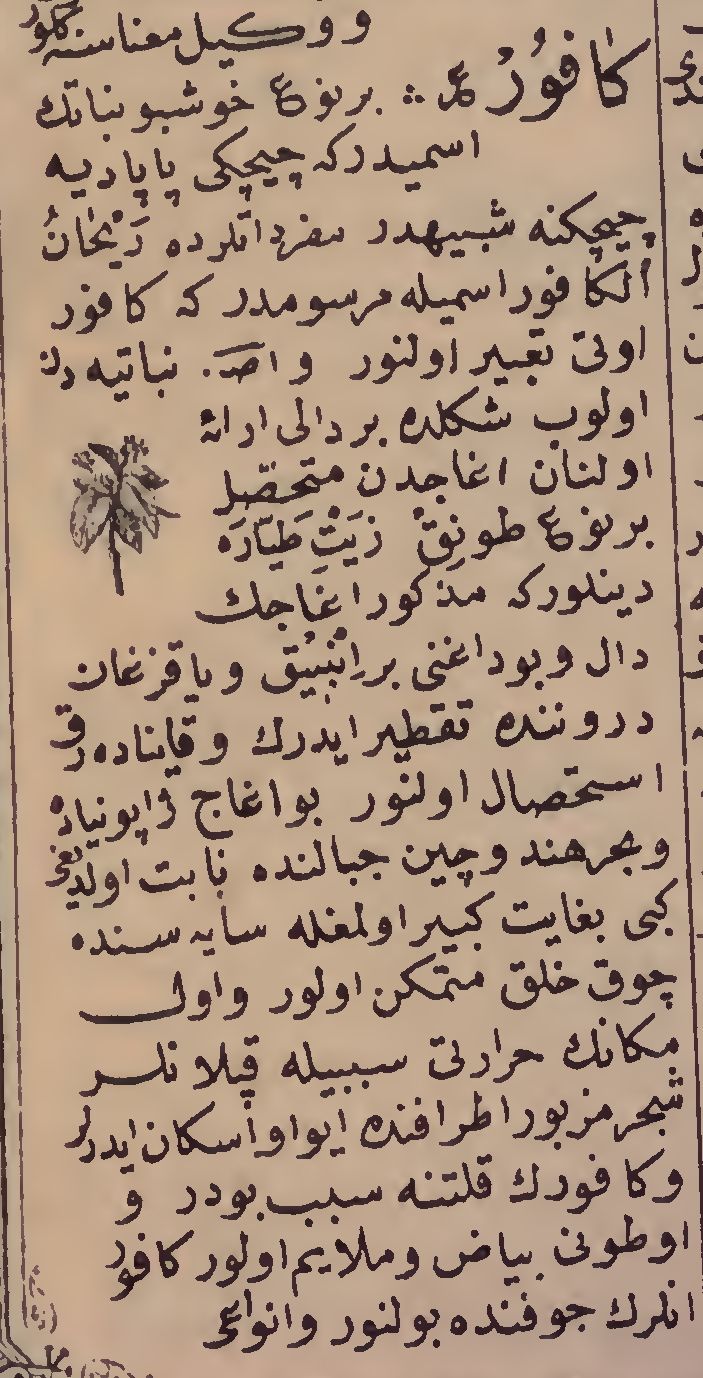 و وكيل معناسنه كلور
كافُورْ ع : برنوع خوشبو نباتك
اسميدركه چيچكى پاپاديه
چيچكنه شبيهدر مفرداتلرده رَيْحَانُ
اَلْكافور اسميله مرسومدر كه كافور
اوتى تعبير اولنور و اصـ. نباتيه دن
اولوب شكلده بر دالى ارائه
اولنان اغاجدن متحصّل
برنوع طونِقْ زَيْتِ طَيَّارَه
دينلوركه مذكور اغاجك
دال وبوداغنى بر اِنْبيقْ ويا قزغان
دروننده تقطير ايدرك و قايناده رق
استحصال اولنور بو اغاج ژاپونياده
و بحر هند و چين جبالنده نابت اولديغى
كبى بغايت كبير اولمغله سايه سنده
چوق خلق متمكن اولور و اول
مكانك حرارتى سببيله قپلانلر
شجر مزبور اطرافنده ايوا و اسكان ايدرلر
و كافورك قلتنه سبب بودر و
اوطونى بياض و ملايم اولور كافور
انلرك جوفنده بولنور و انواعى